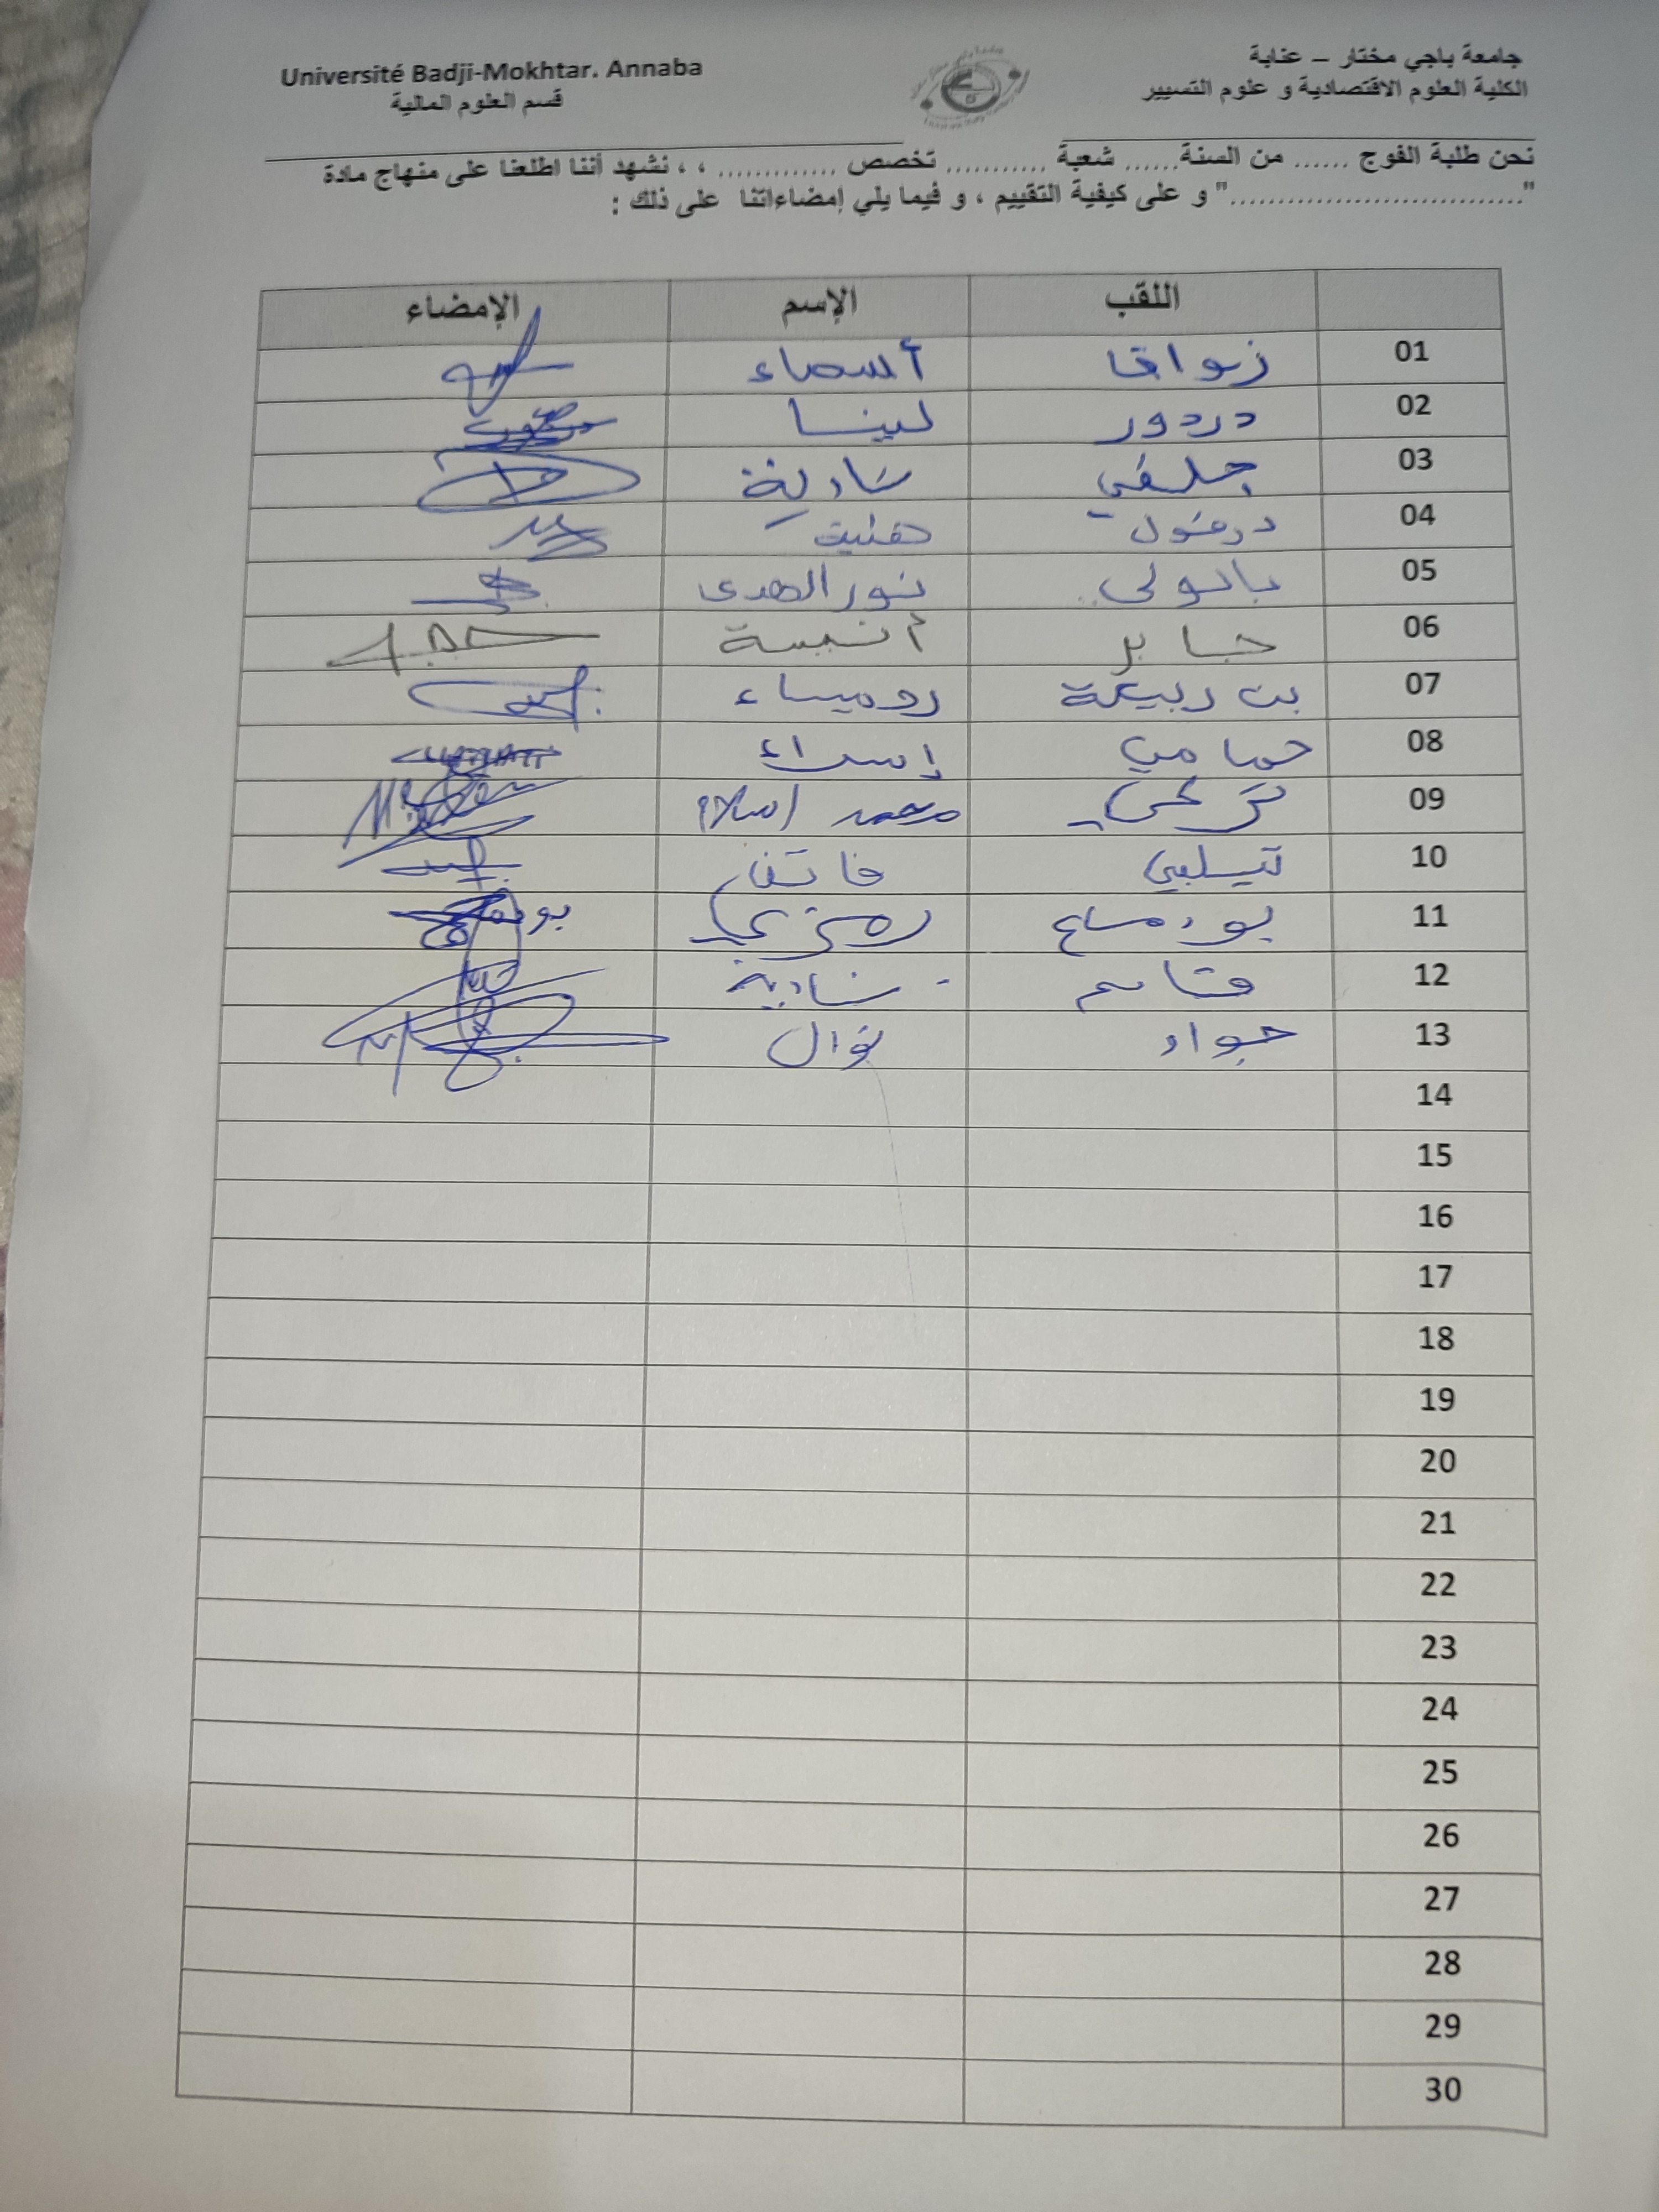 جامعة باجي مختار – عنابة
الكلية العلوم الاقتصادية و علوم التسيير
Université Badji-Mokhtar. Annaba
قسم العلوم المالية
نحن طلبة الفوج ...... من السنة...... شعبة ........... تخصص ............. ، ، نشهد أننا اطلعنا على منهاج مادة
"..............................." و على كيفية التقييم ، و فيما يلي إمضاءاتنا على ذلك :
اللقب الإسم الإمضاء
01 زواقا أسماء
02 دردور لينا
03 جلفي شادية
04
05 نور الهدى
06 جابر أنيسة
07 بن ربيعة روميساء
08 حمامي إسراء
09 محمد اسلام
10 فاتن
11 رمزي
12 قاسم شادية
13 جواد نوال
14
15
16
17
18
19
20
21
22
23
24
25
26
27
28
29
30